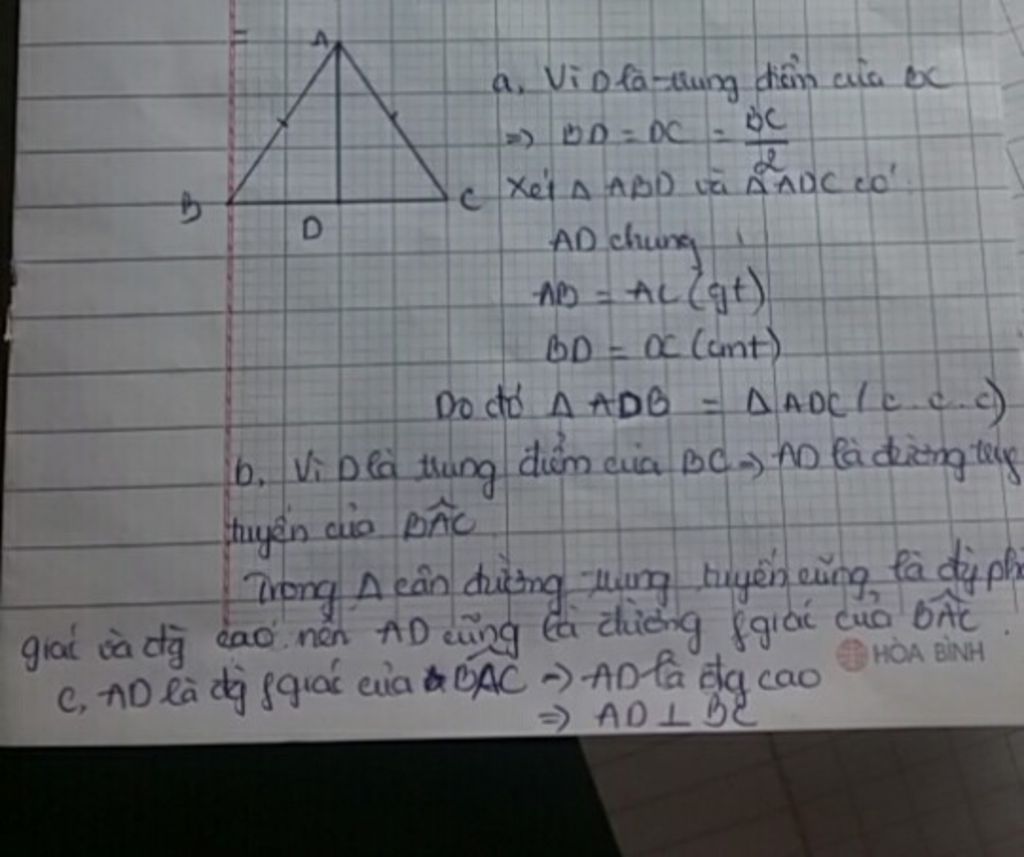 A
B
C
D
a, Vì D là trung điểm của BC
=> BD = DC = BC/2
Xét Δ ABD và Δ ADC có
AD chung
AB = AC (gt)
BD = DC (cmt)
Do đó Δ ADB = Δ ADC (c.c.c)
b. Vì D là trung điểm của BC => AD là đường
tuyến của BÂC
Trong Δ cân đường trung tuyến cũng là đg
giác và đg cao nên AD cũng là đường fgiác của BÂC.
HÒA BÌNH
c, AD là đg fgiác của BÂC => AD là đg cao
=> AD ⊥ BC